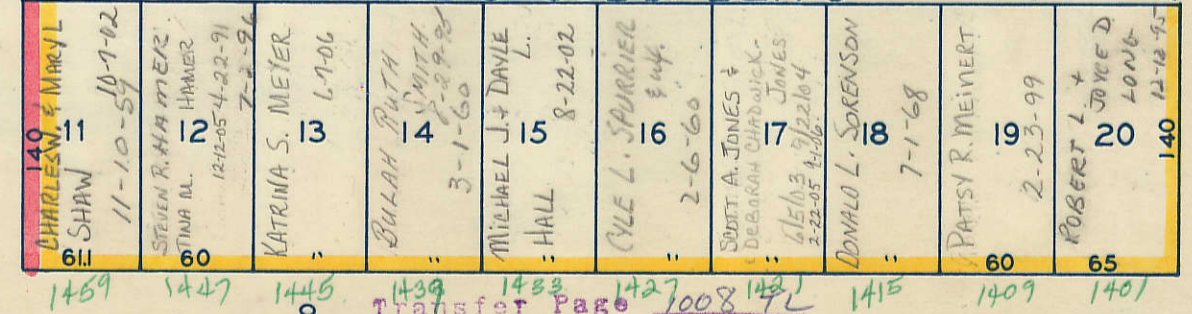 CHARLES W. & MARY L
SHAW
10-7-02
11-10-59
140
11
61.1
STEVEN R. HAMER
TINA M. HAMER
12-12-05 4-22-91
7-2-96
12
60
KATRINA S. MEYER
6-7-06
13
"
BULAH RUTH
SMITH
3-1-60
14
"
MICHAEL J. & DAYLE
L.
HALL
8-22-02
15
"
CYLE L. SPURRIER
& wf.
2-6-60
16
"
SCOTT. A. JONES &
DEBORAH CHADWICK-
JONES
6/5/03 9/22/04
2-22-05
17
"
DONALD L. SORENSON
7-1-68
18
"
PATSY R. MEINERT
2-23-99
19
60
ROBERT L &
JOYCE D
LONG
12-12-95
20
140
65
1459 1447 1445 1439 1433 1427 1421 1415 1409 1401
Transfer Page 1008 TL